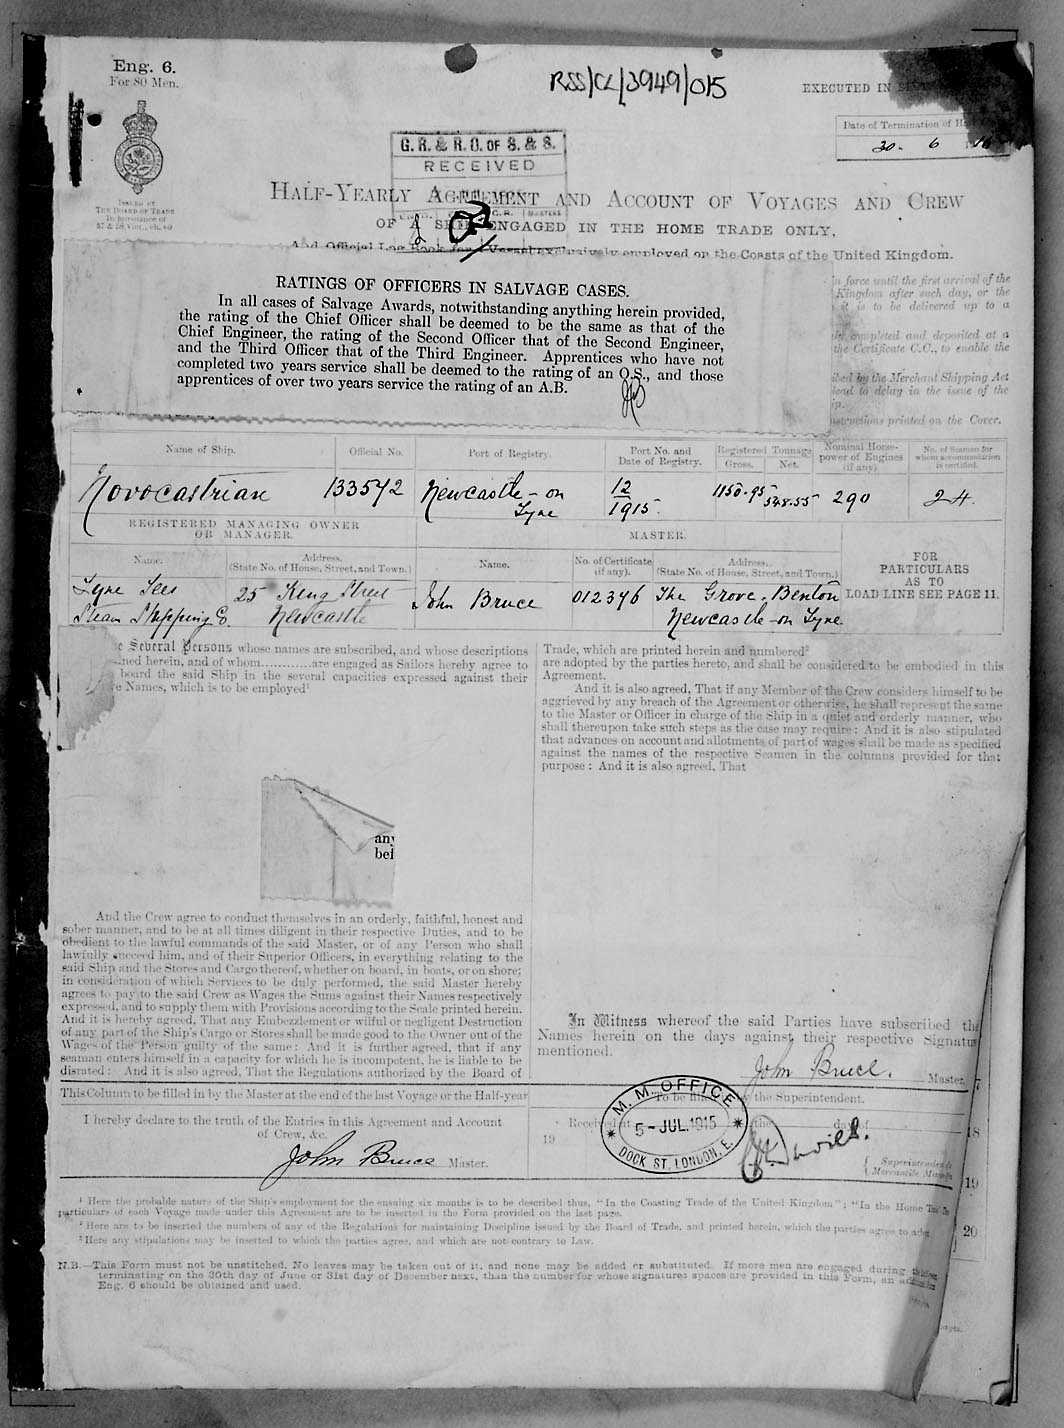 Eng. 6.
For 80 Men.
RSS/CL/3949/015
EXECUTED IN
Date of Termination of
30. 6
ISSUED BY
THE BOARD OF TRADE
In pursuance of
57 & 58 Vict., ch. 60
G. R. & R. O. OF S. & S.
RECEIVED
HALF-YEARLY AGREEMENT AND ACCOUNT OF VOYAGES AND CREW
OF A SHIP ENGAGED IN THE HOME TRADE ONLY,
And Official Log Book for a Vessel exclusively employed on the Coasts of the United Kingdom.
RATINGS OF OFFICERS IN SALVAGE CASES.
In all cases of Salvage Awards, notwithstanding anything herein provided,
the rating of the Chief Officer shall be deemed to be the same as that of the
Chief Engineer, the rating of the Second Officer that of the Second Engineer,
and the Third Officer that of the Third Engineer. Apprentices who have not
completed two years service shall be deemed to the rating of an O.S., and those
apprentices of over two years service the rating of an A.B.
JB
in force until the first arrival of the
Kingdom after such day, or the
it is to be delivered up to a
completed and deposited at a
the Certificate C.C., to enable the
ibed by the Merchant Shipping Act
lead to delay in the issue of the
instructions printed on the Cover.
Name of Ship.
Official No.
Port of Registry.
Port No. and
Date of Registry.
Registered Tonnage
Gross.
Net.
Nominal Horse-
power of Engines
(if any)
No. of Seamen for
whom accommodation
is certified.
Novocastrian
133542
Newcastle-on
Tyne
12
1915.
1150.95
548.55
290
24.
REGISTERED MANAGING OWNER
OR MANAGER.
MASTER.
Name.
Address.
(State No. of House, Street, and Town.)
Name.
No. of Certificate
(if any).
Address.
(State No. of House, Street, and Town.)
FOR
PARTICULARS
AS TO
LOAD LINE SEE PAGE 11.
Tyne Tees
Steam Shipping Co.
25 King Street
Newcastle
John Bruce
012376
The Grove, Benton
Newcastle-on Tyne.
Several Persons whose names are subscribed, and whose descriptions
ned herein, and of whom............are engaged as Sailors hereby agree to
board the said Ship in the several capacities expressed against their
Names, which is to be employed¹
any
bef
And the Crew agree to conduct themselves in an orderly, faithful, honest and
sober manner, and to be at all times diligent in their respective Duties, and to be
obedient to the lawful commands of the said Master, or of any Person who shall
lawfully succeed him, and of their Superior Officers, in everything relating to the
said Ship and the Stores and Cargo thereof, whether on board, in boats, or on shore;
in consideration of which Services to be duly performed, the said Master hereby
agrees to pay to the said Crew as Wages the Sums against their Names respectively
expressed, and to supply them with Provisions according to the Scale printed herein.
And it is hereby agreed, That any Embezzlement or wilful or negligent Destruction
of any part of the Ship's Cargo or Stores shall be made good to the Owner out of the
Wages of the Person guilty of the same: And it is further agreed, that if any
seaman enters himself in a capacity for which he is incompetent, he is liable to be
disrated: And it is also agreed, That the Regulations authorized by the Board of
Trade, which are printed herein and numbered²
are adopted by the parties hereto, and shall be considered to be embodied in this
Agreement.
And it is also agreed, That if any Member of the Crew considers himself to be
aggrieved by any breach of the Agreement or otherwise, he shall represent the same
to the Master or Officer in charge of the Ship in a quiet and orderly manner, who
shall thereupon take such steps as the case may require: And it is also stipulated
that advances on account and allotments of part of wages shall be made as specified
against the names of the respective Seamen in the columns provided for that
purpose: And it is also agreed, That
In Witness whereof the said Parties have subscribed the
Names herein on the days against their respective Signatu
mentioned.
John Bruce. Master.
This Column to be filled in by the Master at the end of the last Voyage or the Half-year
I hereby declare to the truth of the Entries in this Agreement and Account
of Crew, &c.
John Bruce Master.
the Superintendent.
Received at
the day of
19
M. M. OFFICE
5-JUL.1915
DOCK ST. LONDON, E.
Superintendent
Mercantile Marine
7
18
19
20
¹ Here the probable nature of the Ship's employment for the ensuing six months is to be described thus, "In the Coasting Trade of the United Kingdom"; "In the Home
particulars of each Voyage made under this Agreement are to be inserted in the Form provided on the last page.
² Here are to be inserted the numbers of any of the Regulations for maintaining Discipline issued by the Board of Trade, and printed herein, which the parties agree to
³ Here any stipulations may be inserted to which the parties agree, and which are not contrary to Law.
N.B.—This Form must not be unstitched. No leaves may be taken out of it, and none may be added or substituted. If more men are engaged during
terminating on the 30th day of June or 31st day of December next, than the number for whose signatures spaces are provided in this Form, an
Eng. 6 should be obtained and used.